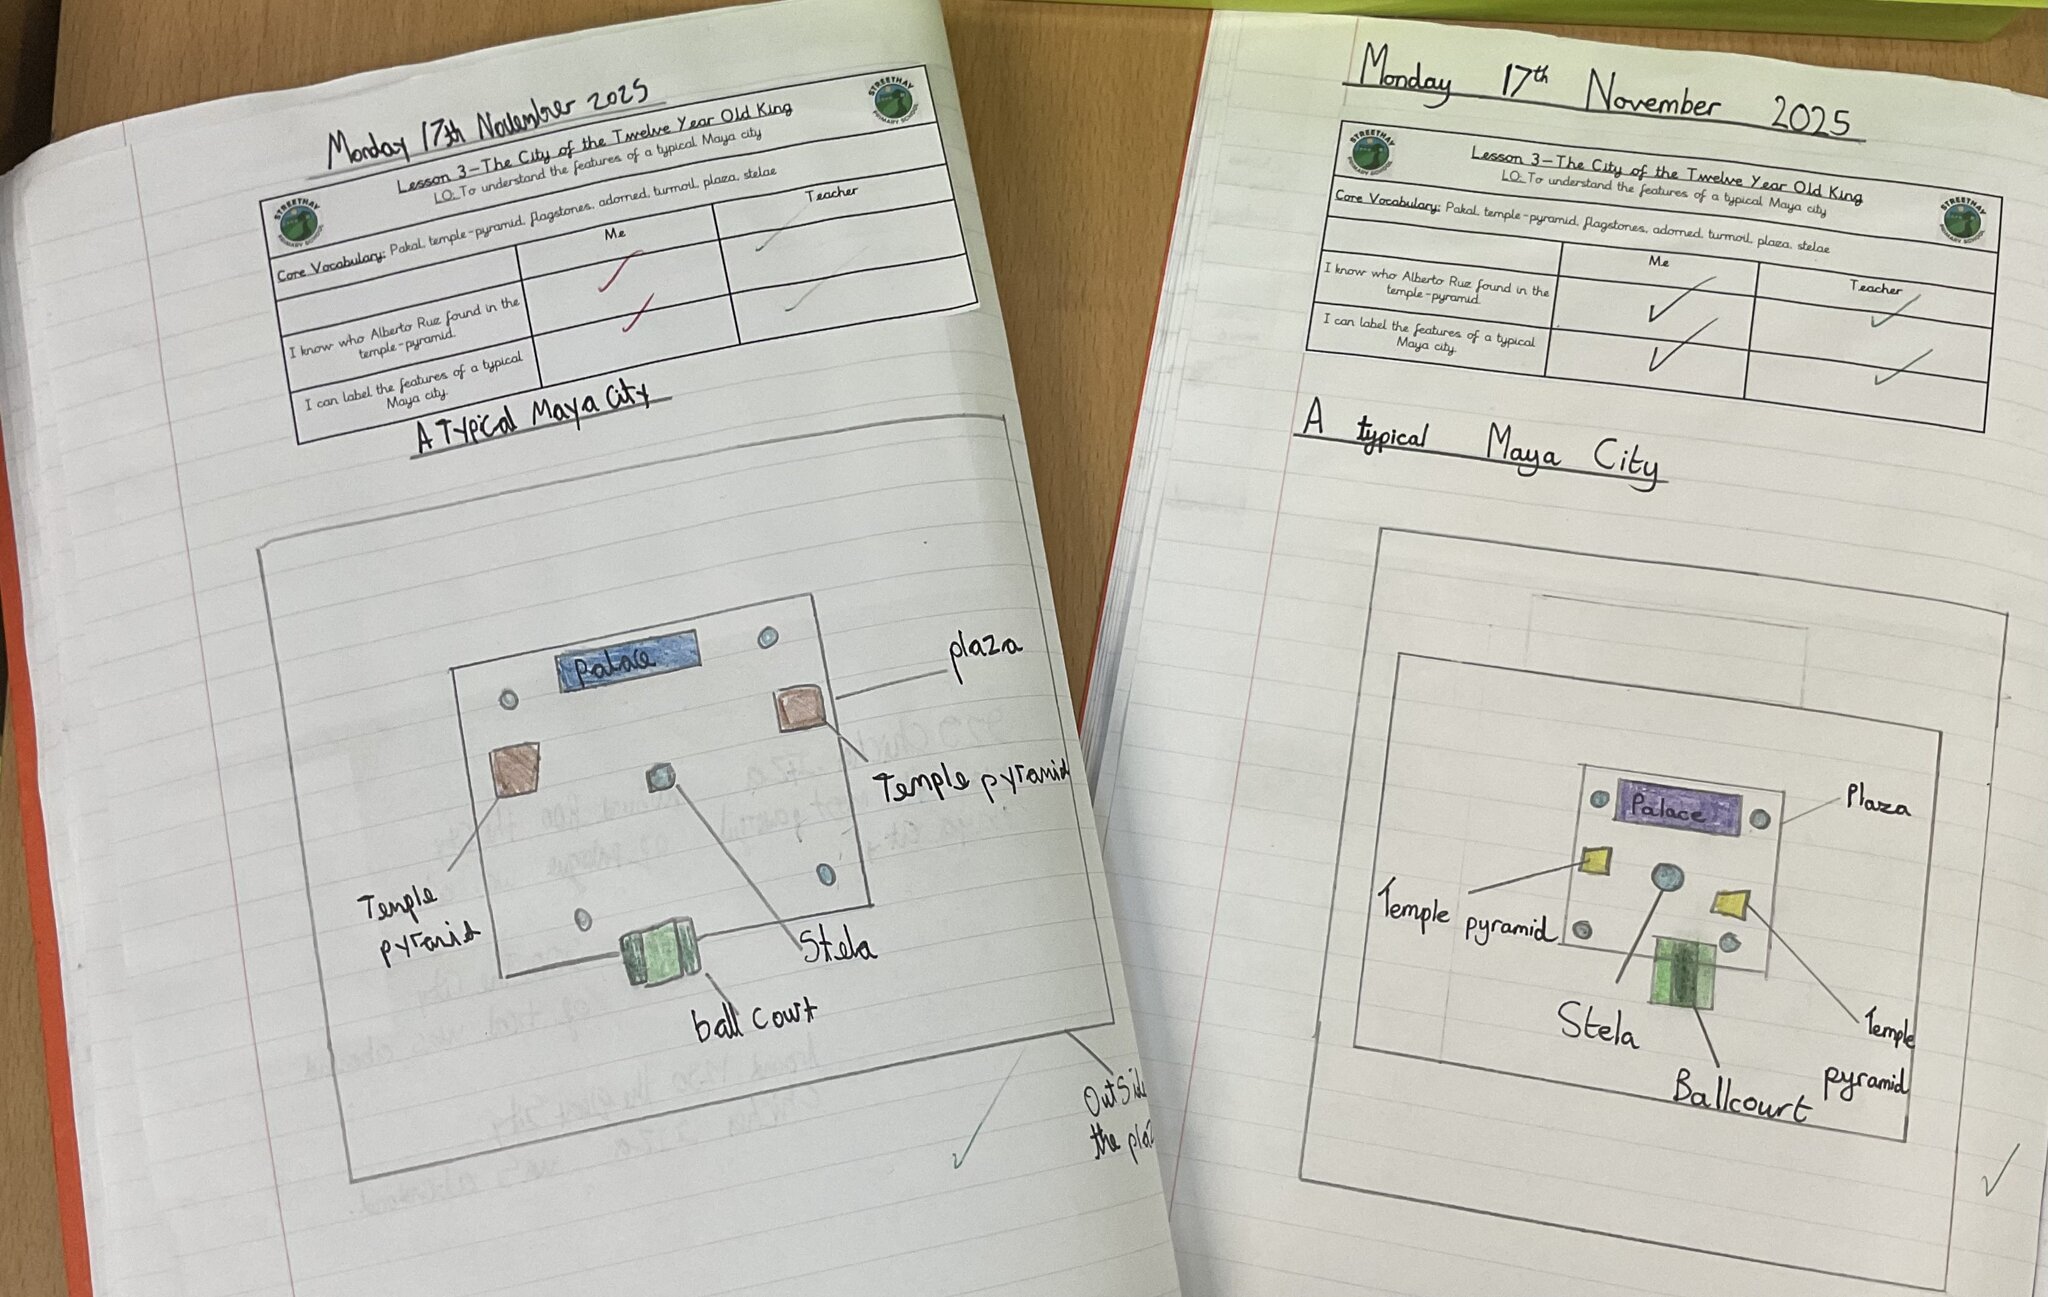 Monday 17th November 2025
STREETHAY
PRIMARY SCHOOL
Lesson 3 – The City of the Twelve Year Old King
LO: To understand the features of a typical Maya city
STREETHAY
PRIMARY SCHOOL
Core Vocabulary: Pakal, temple-pyramid, flagstones, adorned, turmoil, plaza, stelae
Me
Teacher
I know who Alberto Ruz found in the
temple-pyramid.
I can label the features of a typical
Maya city.
A Typical Maya City
Palace
plaza
Temple pyramid
Temple
pyramid
Stela
ball court
the
Monday 17th November 2025
STREETHAY
PRIMARY SCHOOL
Lesson 3 – The City of the Twelve Year Old King
LO: To understand the features of a typical Maya city
STREETHAY
PRIMARY SCHOOL
Core Vocabulary: Pakal, temple-pyramid, flagstones, adorned, turmoil, plaza, stelae
Me
Teacher
I know who Alberto Ruz found in the
temple-pyramid.
I can label the features of a typical
Maya city.
A typical Maya City
Palace
Plaza
Temple pyramid
Stela
Temple
pyramid
Ballcourt